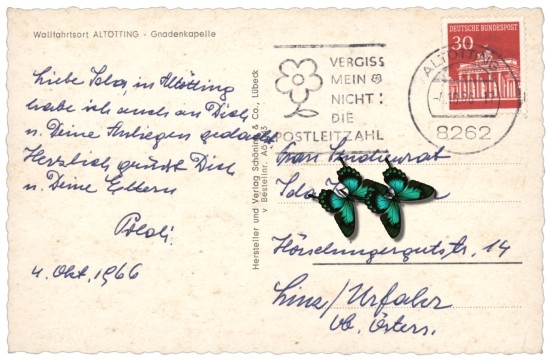 Wallfahrtsort ALTÖTTING - Gnadenkapelle
Liebe Ida, in Altötting
habe ich auch an Dich
u. Deine Anliegen gedacht
Herzlich grüßt Dich
u. Deine Eltern
Poldi.
4. Okt. 1966
Hersteller und Verlag Schöning & Co., Lübeck
Bestellnr.
VERGISS
MEIN
NICHT!
DIE
POSTLEITZAHL
ALTÖTTING
8262
30
DEUTSCHE BUNDESPOST
Frau Studienrat
Ida
14
Linz/Urfahr
ob. Österr.